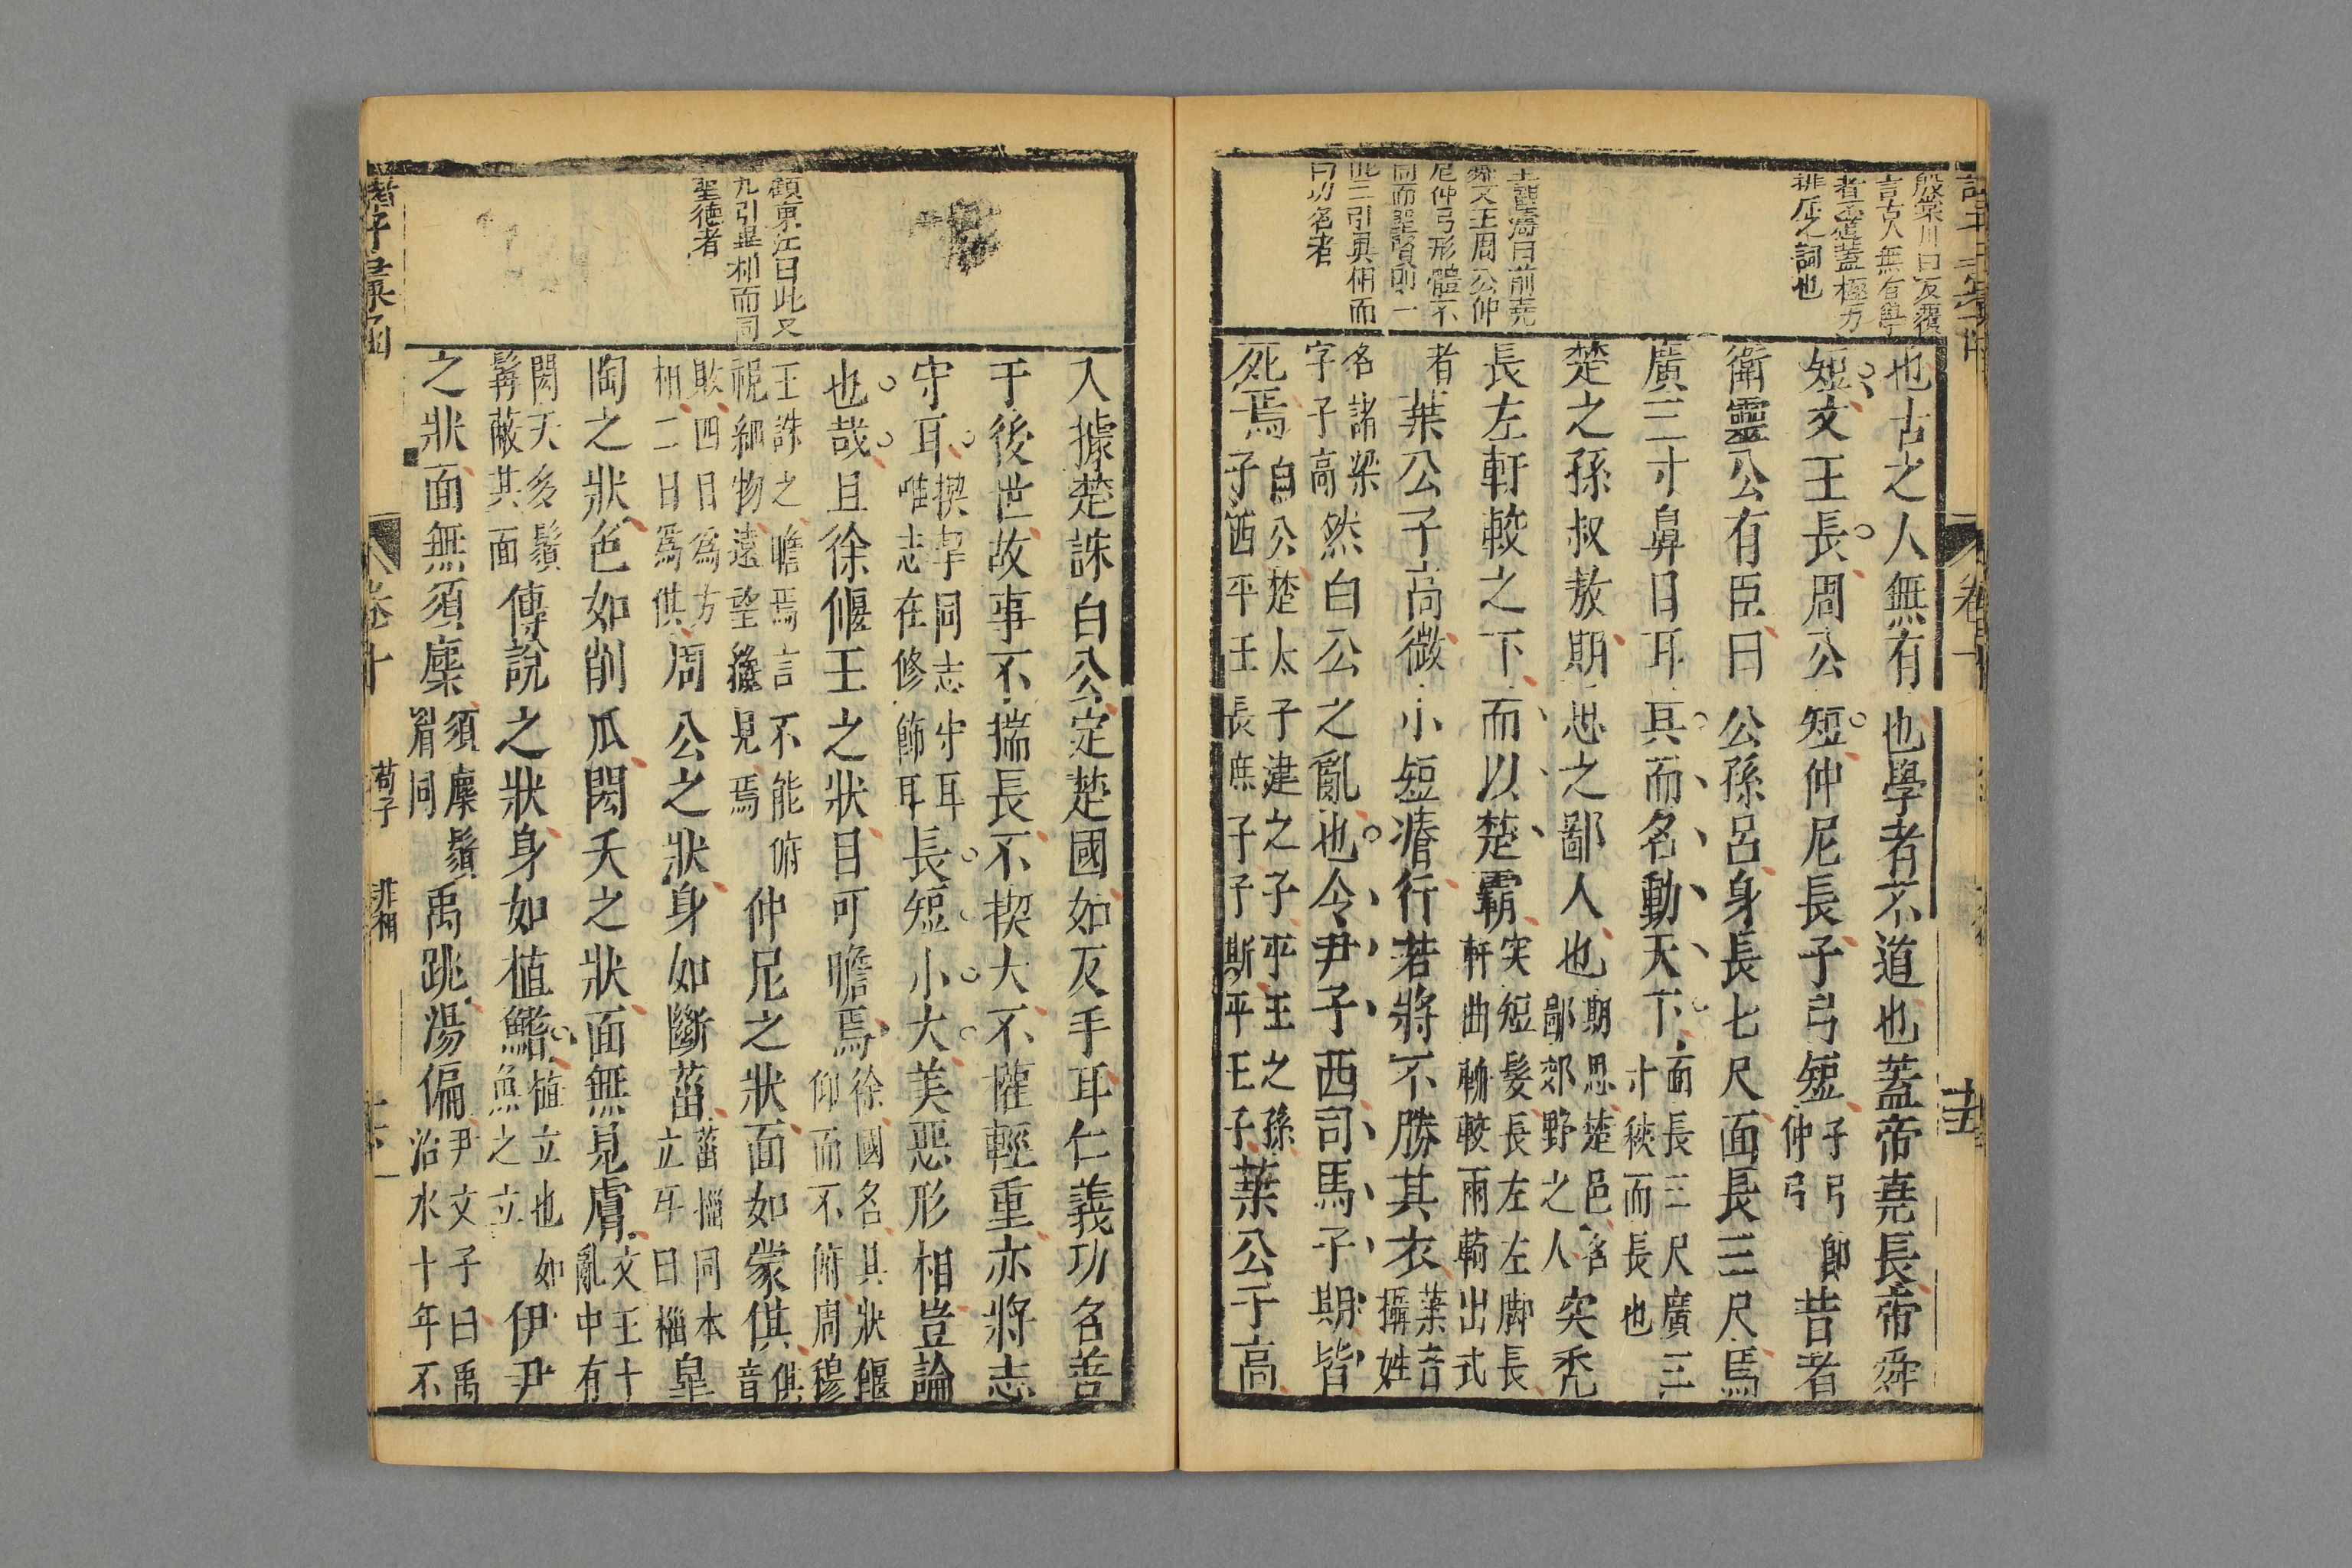 言古人無有學
者不道蓋極力
排斥之詞也
尼仲弓形體不
同而聖賢則一
此二引異相而
曰功名者
也古之人無有也學者不道也蓋帝堯長帝舜
短文王長周公短仲尼長子弓短子弓即仲弓昔者
衛靈公有臣曰公孫呂身長七尺面長三尺焉
廣三寸鼻目耳具而名動天下面長三尺廣三寸狹而長也
楚之孫叔敖期思之鄙人也期思楚邑名鄙郊野之人突禿
長左軒較之下而以楚霸突短髮長左左脚長軒曲輈較兩輢出式
者葉公子高微小短瘠行若將不勝其衣葉音攝姓
名諸梁字子高然白公之亂也令尹子西司馬子期皆
死焉白公楚太子建之子平王之孫子西平王長庶子子斯平王子葉公子高
入據楚誅白公定楚國如反手耳仁義功名善
于後世故事不揣長不揳大不權輕重亦將志
守耳揳與同志守耳唯志在修飾耳長短小大美惡形相豈論
也哉且徐偃王之狀目可瞻焉徐國名其狀偃仰而不俯周穆
王誅之瞻焉言不能俯視細物遠望纔見焉仲尼之狀面如蒙倛倛音
欺四目為方相二目為倛周公之狀身如斷菑菑椔同本立死曰椔皐
陶之狀色如削瓜閎夭之狀面無見膚文王十亂中有
閎夭多鬚髯蔽其面傳說之狀身如植鰭植立也如魚之立伊尹
之狀面無須麋須麋鬚眉同禹跳湯偏尹文子曰禹治水十年不
顧東江曰此又
九引異相而同
聖德者
諸子彙函
卷十
荀子
非相